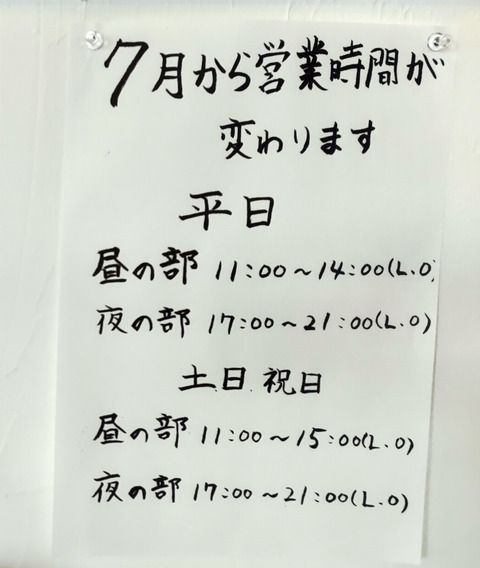 7月から営業時間が
変わります
平日
昼の部 11:00～14:00(L.O)
夜の部 17:00～21:00(L.O)
土日祝日
昼の部 11:00～15:00(L.O)
夜の部 17:00～21:00(L.O)